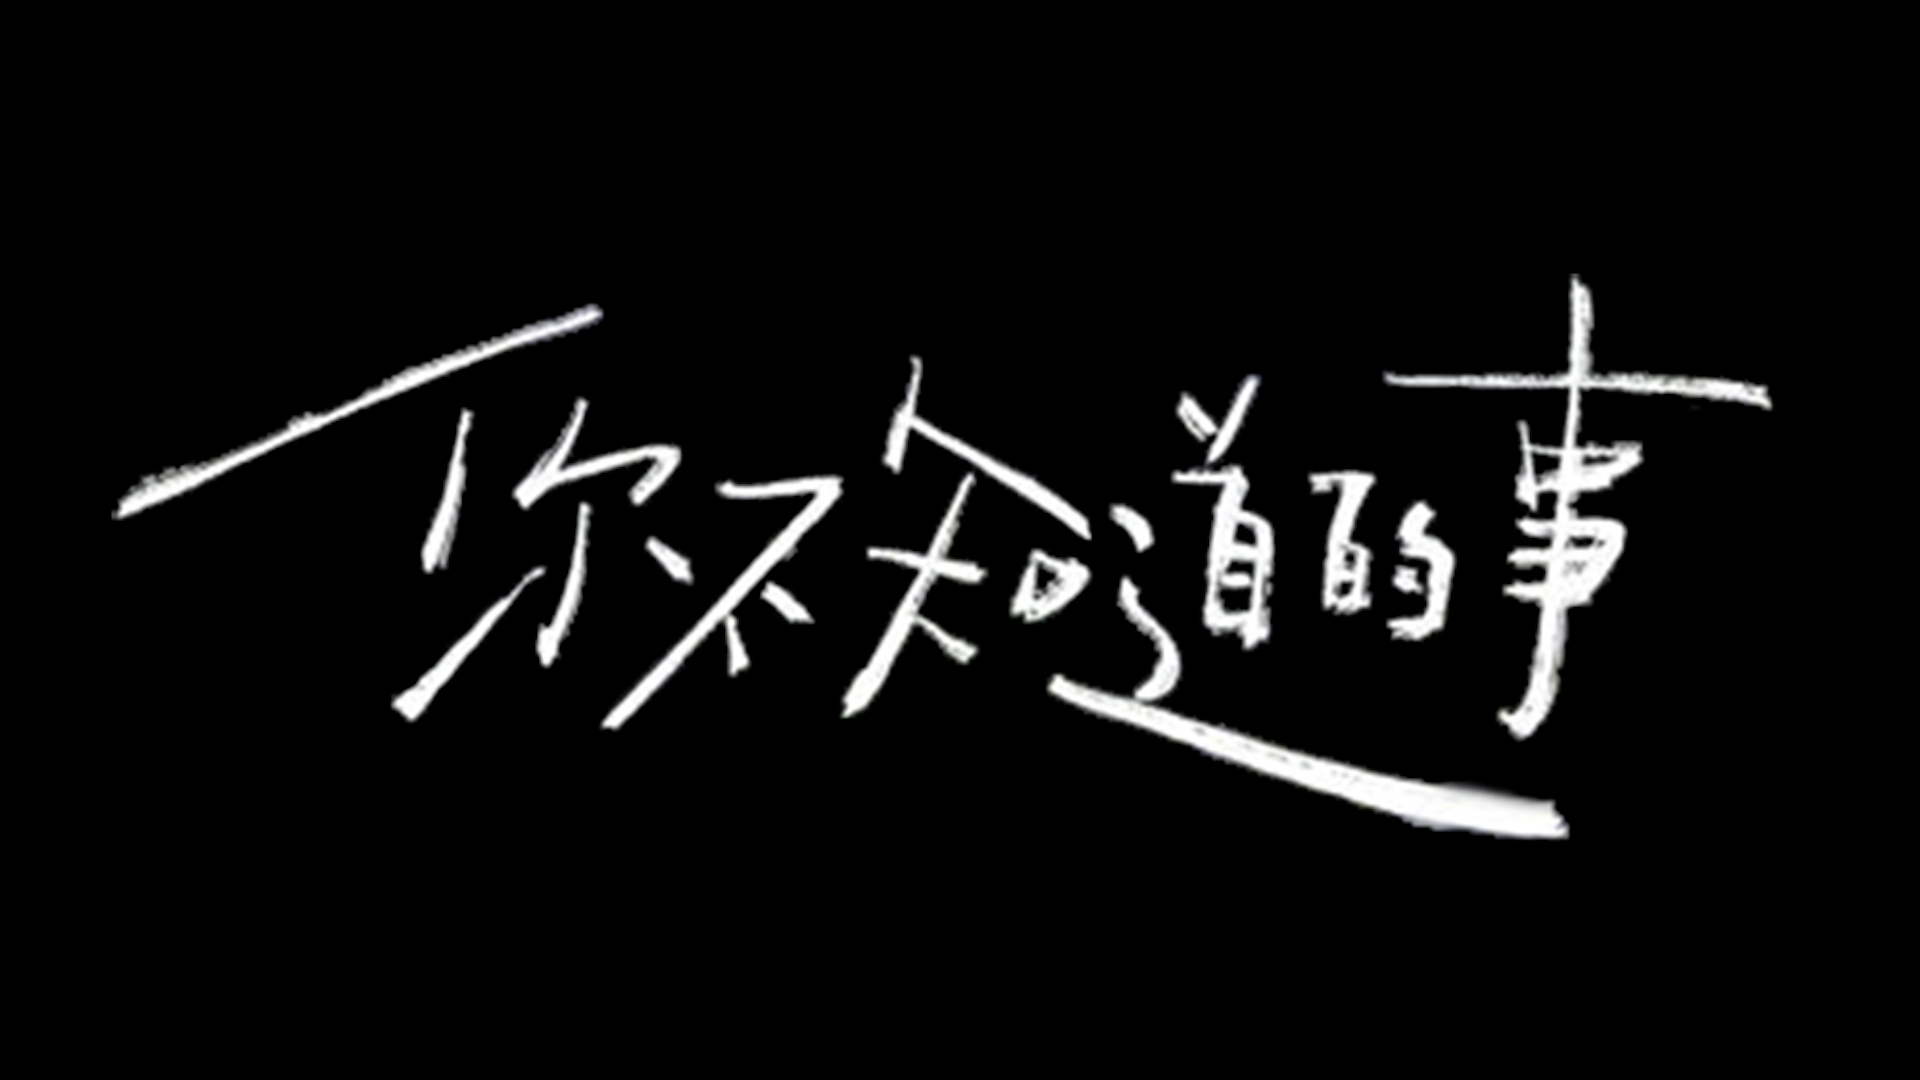 你不知道的事